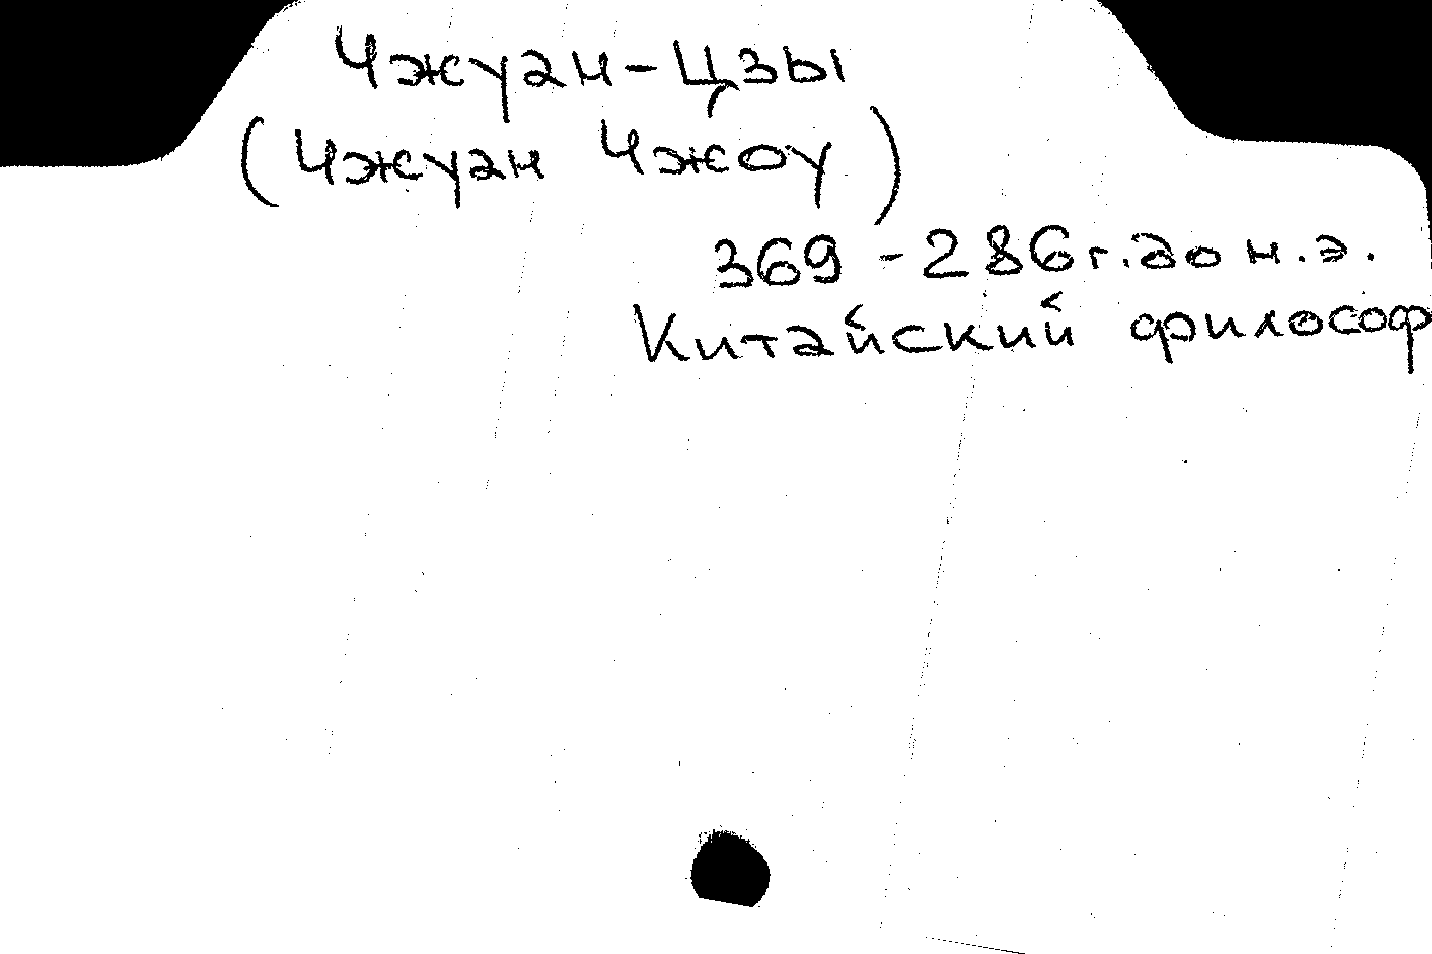 Чжуан-Цзы
(Чжуан Чжоу)
369-286 г. до н.э.
Китайский философ